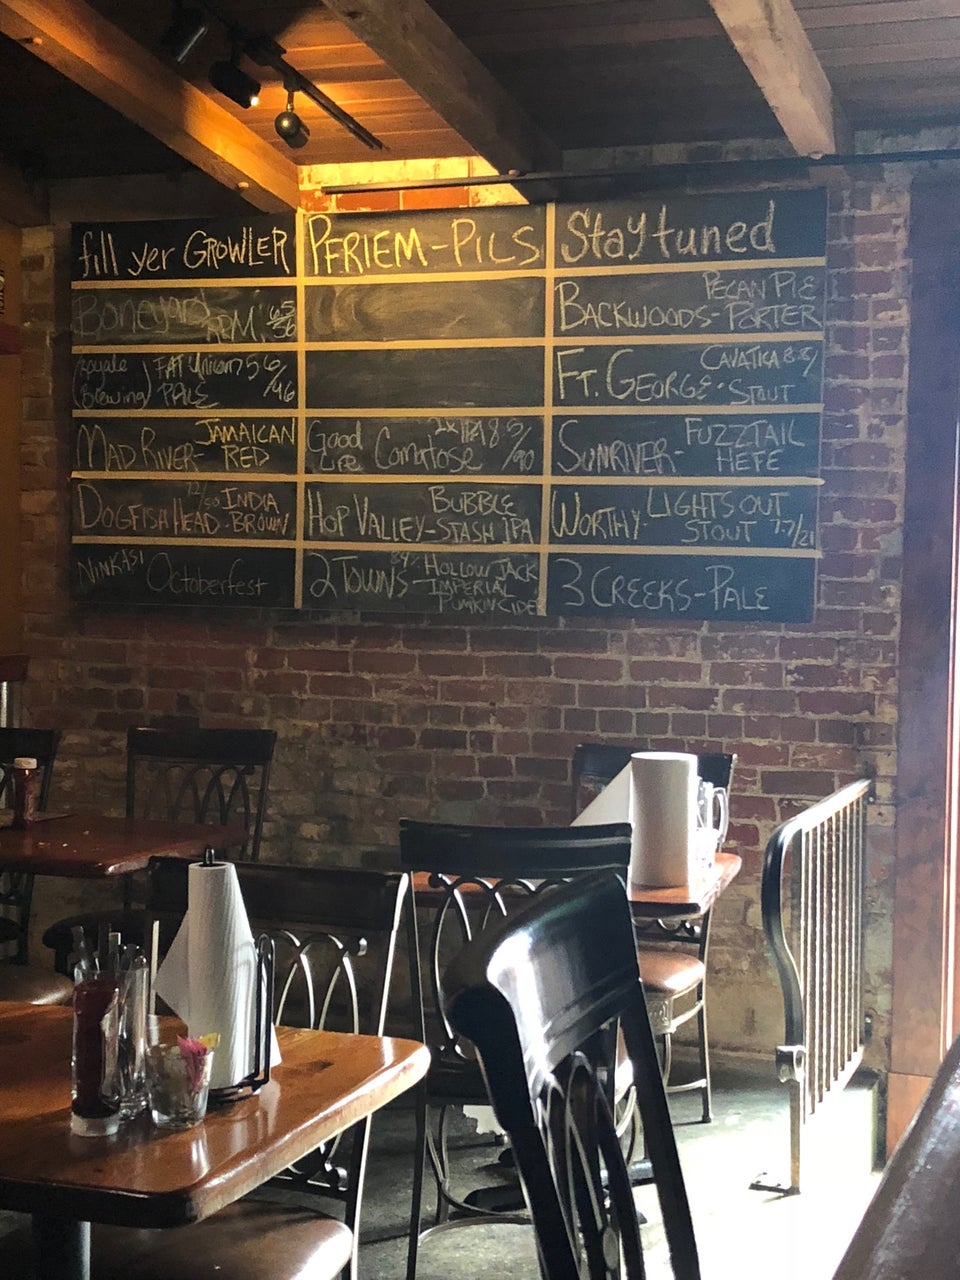 fill yer GROWLER
Boneyard
RPM
Royale
(Brewing)
FAT Unicorn 5.6
/46
PALE
MAD RIVER-
JAMAICAN
RED
DOGFISH HEAD-
INDIA
BROWN
NINKASI
Octoberfest
PFRIEM-PILS
Good
Life
Comatose
2xIPA 8.5
/90
HOP VALLEY-
BUBBLE
STASH IPA
2 TOWNS
HOLLOW JACK
IMPERIAL
PUMKIN CIDE
Stay tuned
BACKWOODS-
PECAN PIE
PORTER
FT. GEORGE-
CAVATICA 8.8/
STOUT
SUNRIVER-
FUZZTAIL
HEFE
WORTHY-
LIGHTS OUT
STOUT 7.7/21
3 CREEKS-PALE